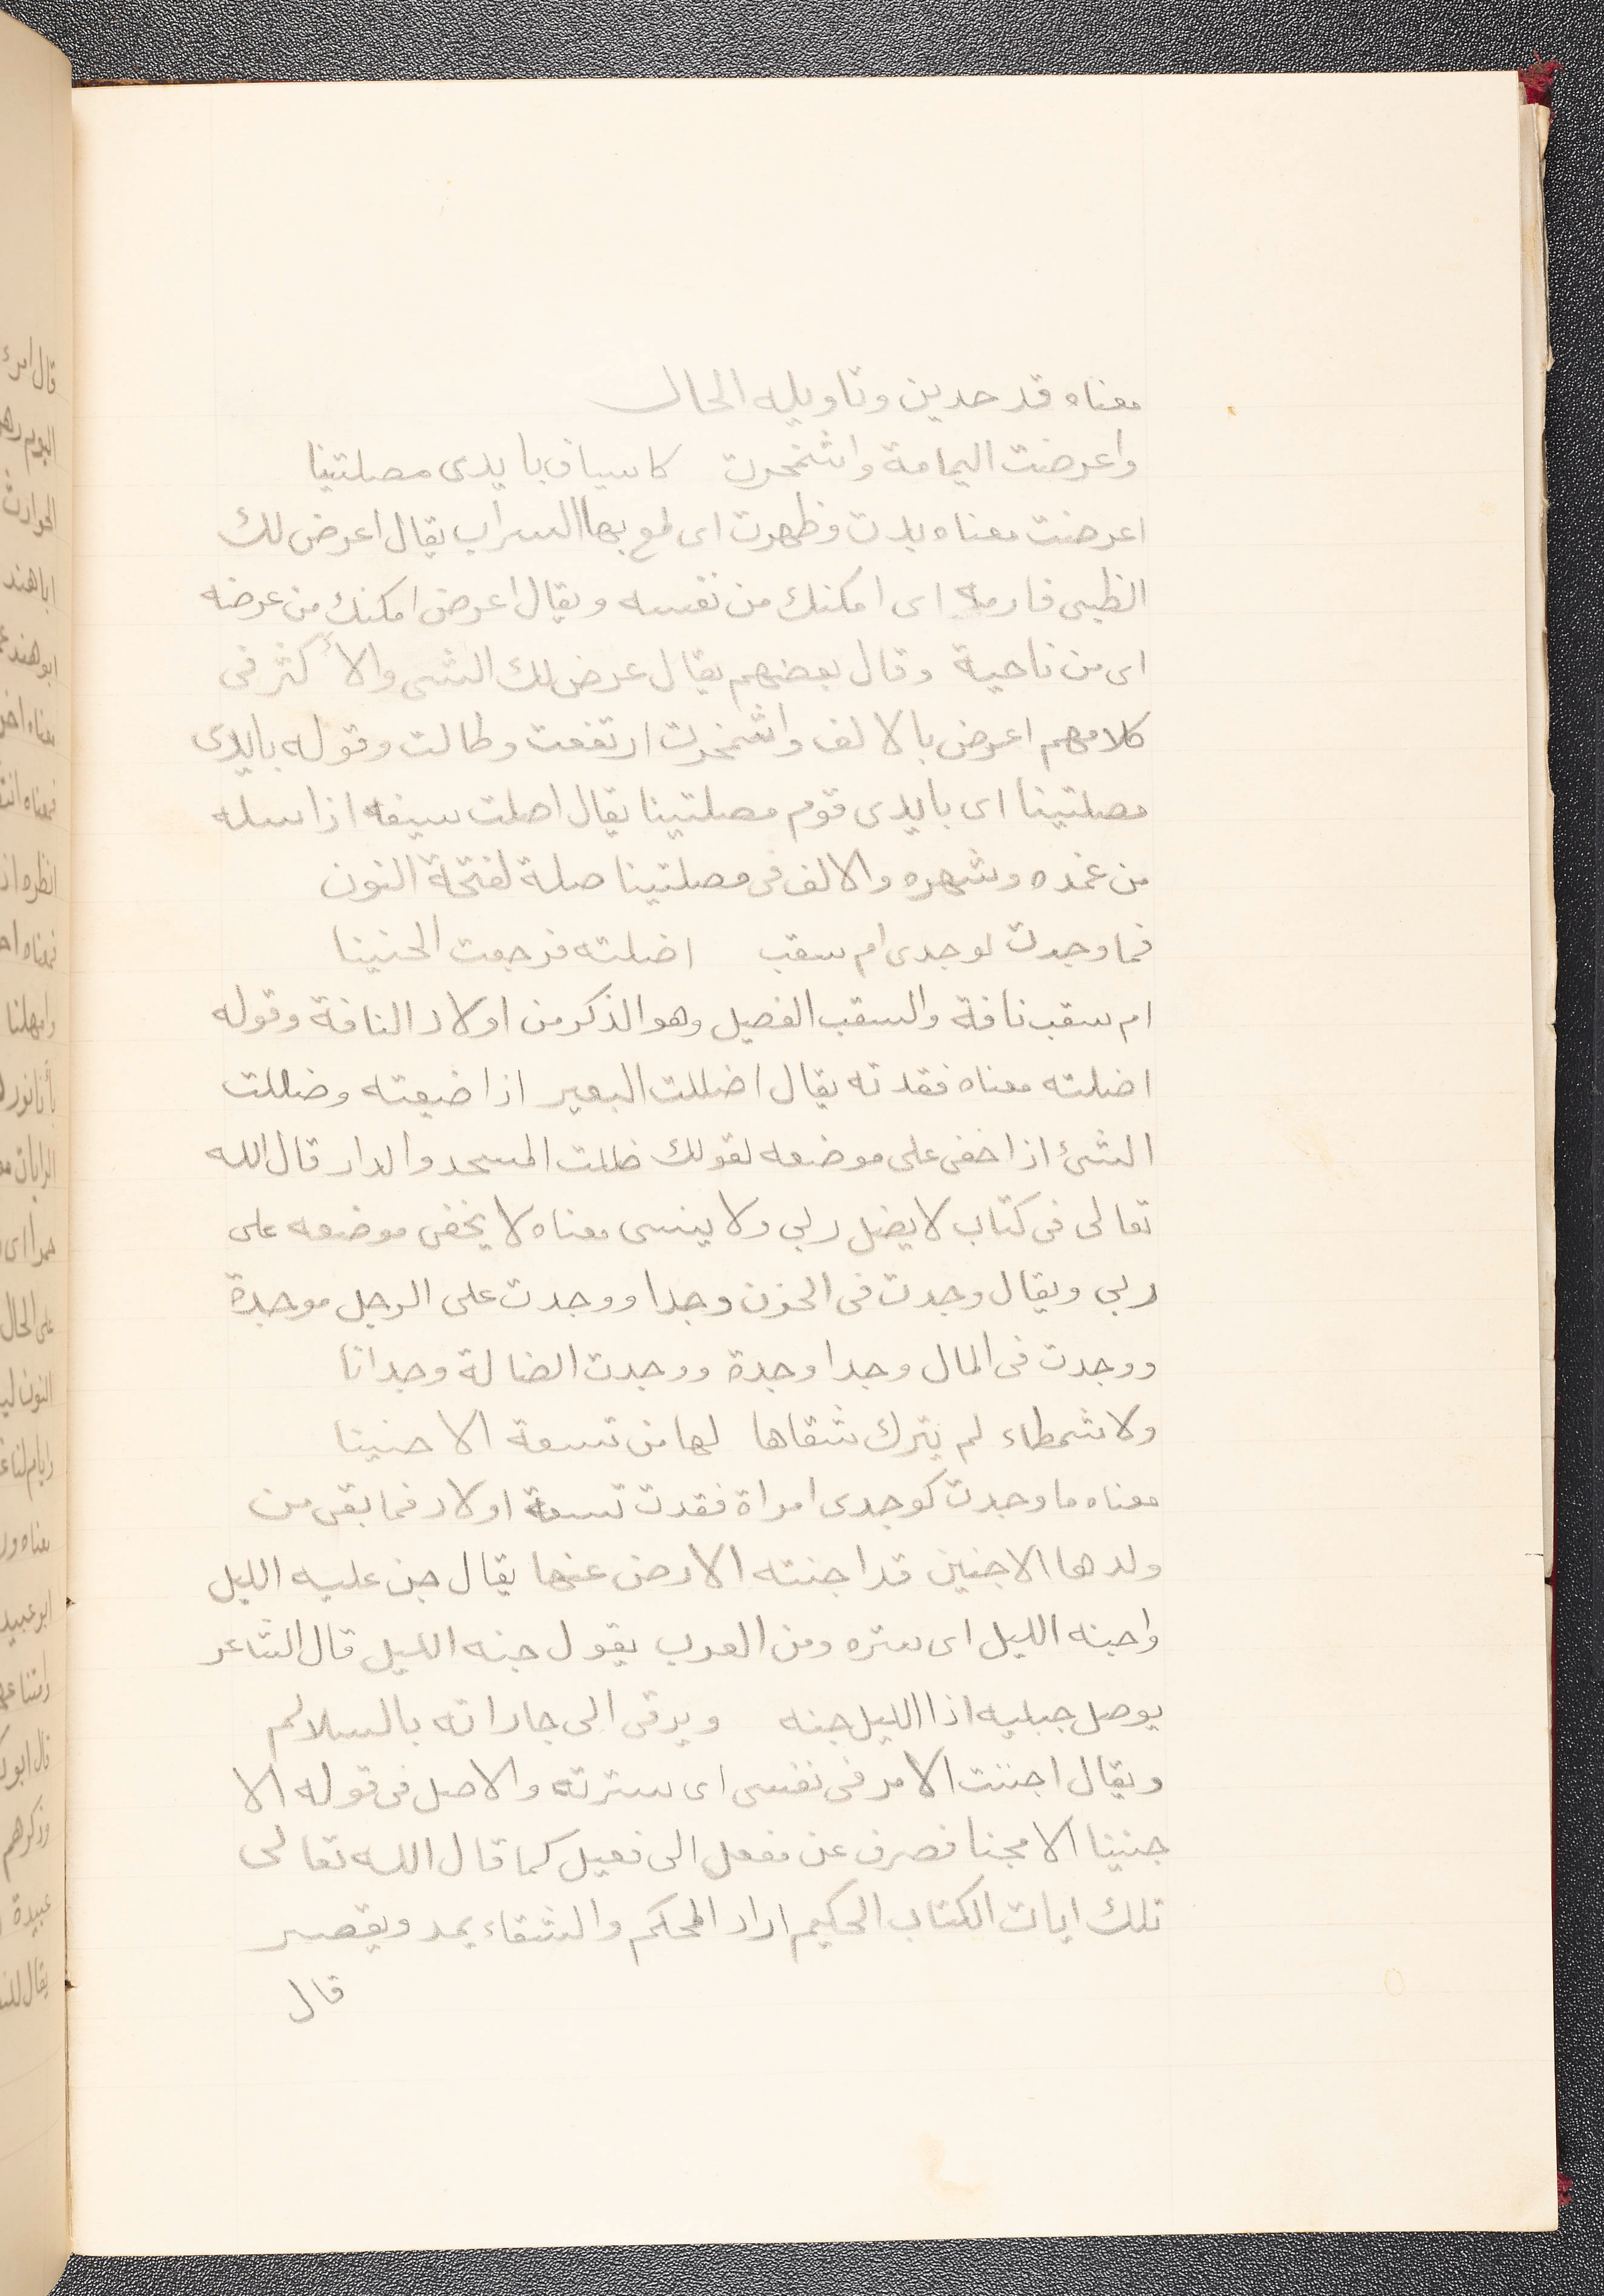 معناه قد حدين وتاويله الحال
واعرضت اليمامة واشمخرت كاسياف بايدى مصلتينا
اعرضت معناه بدت وظهرت اى لمع بها السراب يقال اعرض لك
الظبى فارمه اى امكنك من نفسه ويقال اعرض امكنك من عرضه
اى من ناحية وقال بعضهم يقال عرض لك الشى والأكثر فى
كلامهم اعرض بالالف واشمخرت ارتفعت وطالت وقوله بايدى
مصلتينا اى بايدى قوم مصلتينا يقال اصلت سيفه اذا سله
من غمده وشهره والالف فى مصلتينا صلة لفتحة النون
فما وجدت لوجدى ام سقب اضلته فرجعت الحنينا
ام سقب ناقة والسقب الفصيل وهو الذكر من اولاد الناقة وقوله
اضلته معناه فقدته يقال اضللت البعير اذا ضيعته وضللت
الشئ اذا خفى على موضعه لقولك ضللت المسجد والدار قال الله
تعالى فى كتاب لا يضل ربى ولا ينسى معناه لا يخفى موضعه على
ربى ويقال وجدت فى الحزن وجدا ووجدت على الرجل موجدة
ووجدت فى المال وجدا وجدة ووجدت الضالة وجدانا
ولا شمطاء لم يترك شقاها لها من تسعة الا جنينا
معناه ما وجدت كوجدى امراة فقدت تسعة اولاد فما بقى من
ولدها الا جنين قد اجنته الارض عنها يقال جن عليه الليل
واجنه الليل اى ستره ومن العرب يقول جنه الليل قال الشاعر
يوصل حبليه اذا الليل جنه ويرقى الى جاراته بالسلالم
ويقال اجننت الامر فى نفسى اى سترته والاصل فى قوله الا
جنينا الا مجنا فصرف عن مفعل الى فعيل كما قال الله تعالى
تلك ايات الكتاب الحكيم اراد المحكم والشقاء يمد ويقصر
قال